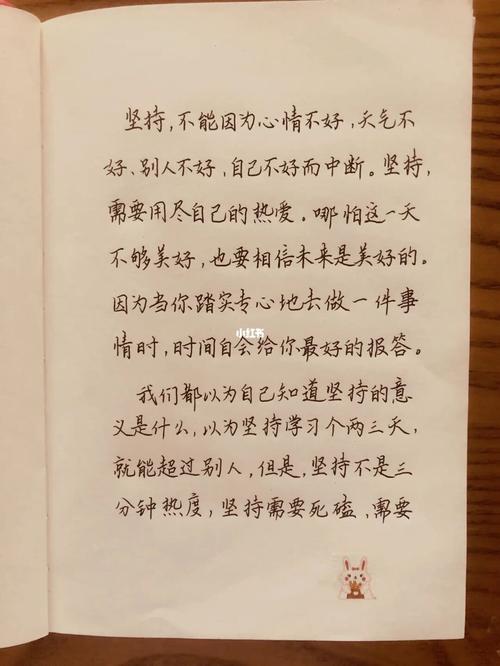 坚持，不能因为心情不好，天气不
好、别人不好，自己不好而中断。坚持，
需要用尽自己的热爱。哪怕这一天
不够美好，也要相信未来是美好的。
因为当你踏实专心地去做一件事
小红书
情时，时间自会给你最好的报答。
我们都以为自己知道坚持的意
义是什么，以为坚持学习个两三天，
就能超过别人，但是，坚持不是三
分钟热度，坚持需要死磕，需要